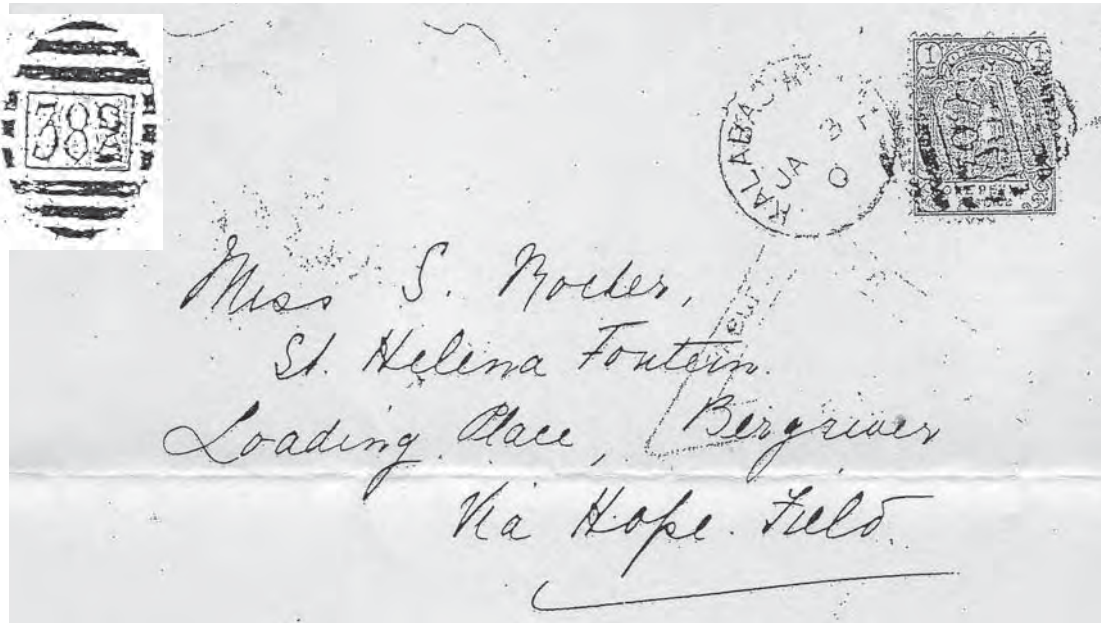 38 SA
KALABAS
JA 3
0
1 1
ONE PENNY
Miss S. Rocher,
St. Helena Fontein.
Loading Place, Bergriver
Via Hope. Field.